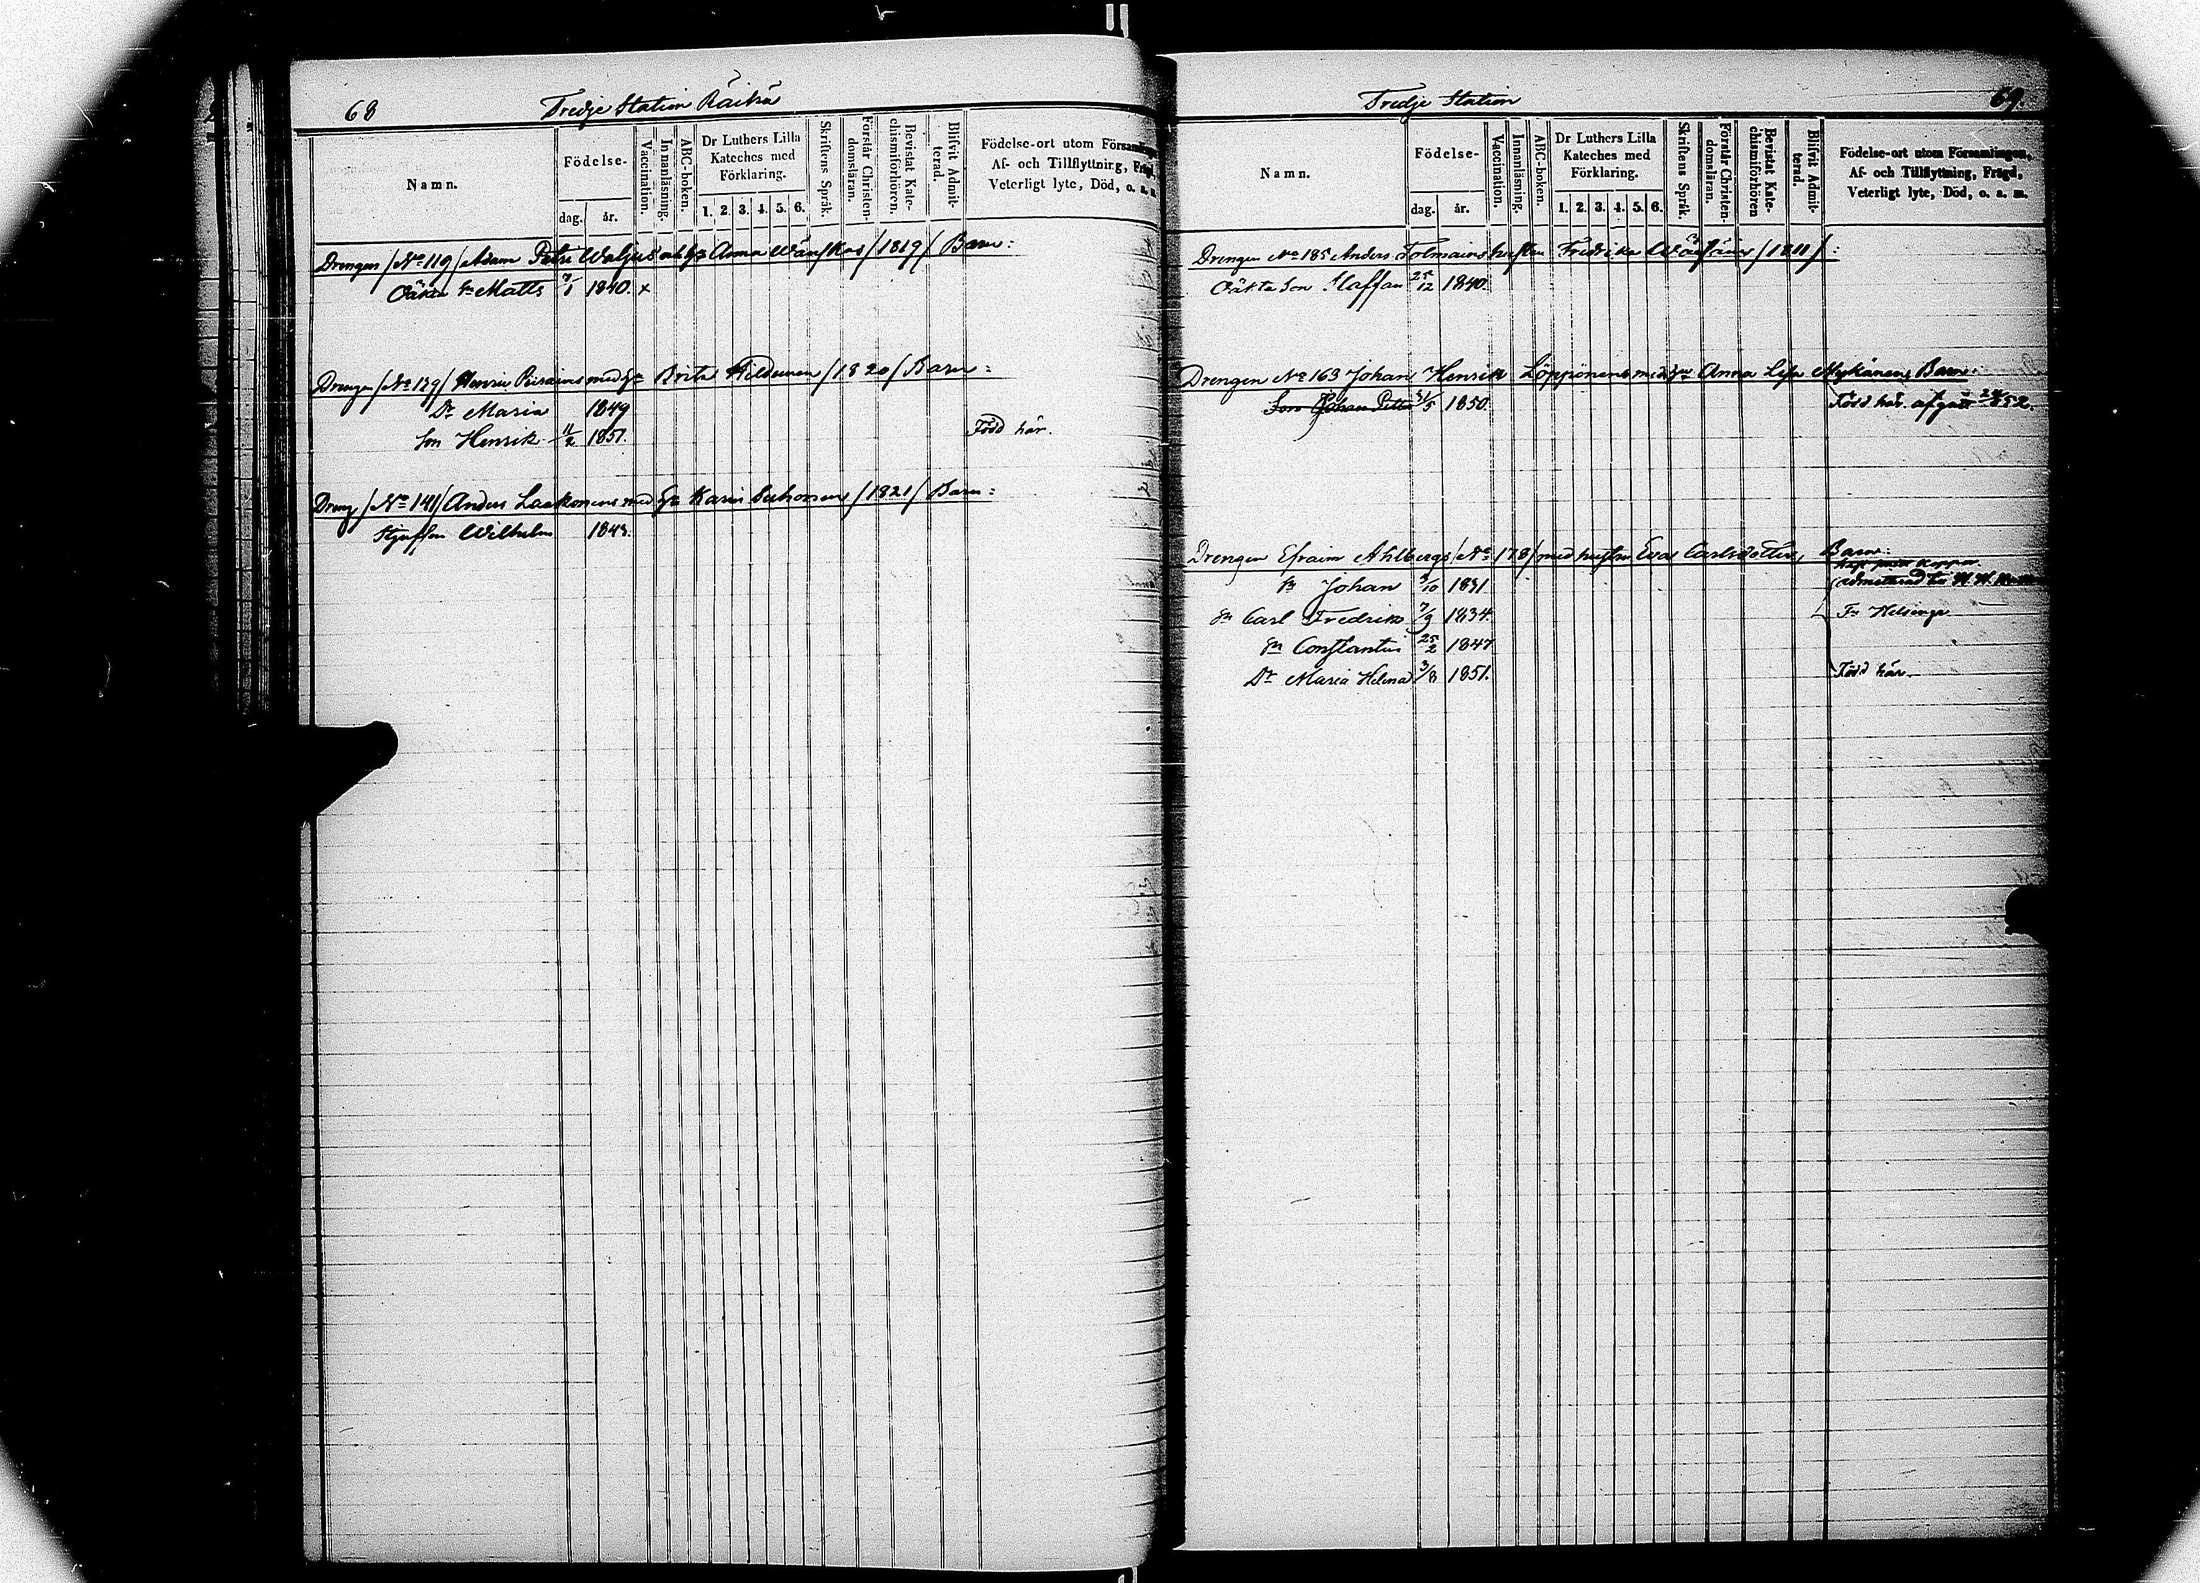 68 Tredje Station Räikä
Namn.
Födelse-
dag. år.
Vaccination.
Innanläsning.
ABC-boken.
Dr Luthers Lilla
Kateches med
Förklaring.
1. 2. 3. 4. 5. 6.
Skriftens Språk.
Förstår Christen-
domsläran.
Bevistat Kate-
chismiförhören.
Blifvit Admit-
terad.
Födelse-ort utom Församlingen
Af- och Tillflyttning, Frägd,
Veterligt lyte, Död, o. s. m.
Drengen /No 119/ Adam Petri Waljus och Anna /1819/ Barn:
Oäkta Sn Matts 7/1 1840. x
Drengen /No 139/ Henric med Brita /1820/ Barn:
Dr Maria 1849
Son Henrik 11/2 1851. Född här.
Dreng /No 141/ Anders Laakonens med Karin /1821/ Barn:
Stjufson Wilhelm 1843.
Tredje Station 69.
Namn.
Födelse-
dag. år.
Vaccination.
Innanläsning.
ABC-boken.
Dr Luthers Lilla
Kateches med
Förklaring.
1. 2. 3. 4. 5. 6.
Skriftens Språk.
Förstår Christen-
domsläran.
Bevistat Kate-
chismiförhören
Blifvit Admit-
terad.
Födelse-ort utom Församlingen,
Af- och Tillflyttning, Frägd,
Veterligt lyte, Död, o. s. m.
Drengen No 185 Anders Tolmains hustru Fredrika /1811/:
Oäkta Son Staffan 25/12 1840.
Drengen No 163 Johan Henrik Löppönens med Anna Lisa Mykänen, Barn:
Son Johan Petter 31/5 1850. Född här. afgått 852.
Drengen Efraim Ahlbergs /No 178/ med hustru Evas Carlsdotter, Barn:
Sn Johan 3/10 1831
Sn Carl Fredrik 7/9 1834. Fr Helsinge
Sn Constantin 25/2 1847
Dr Maria Helena 3/8 1851. Född här.